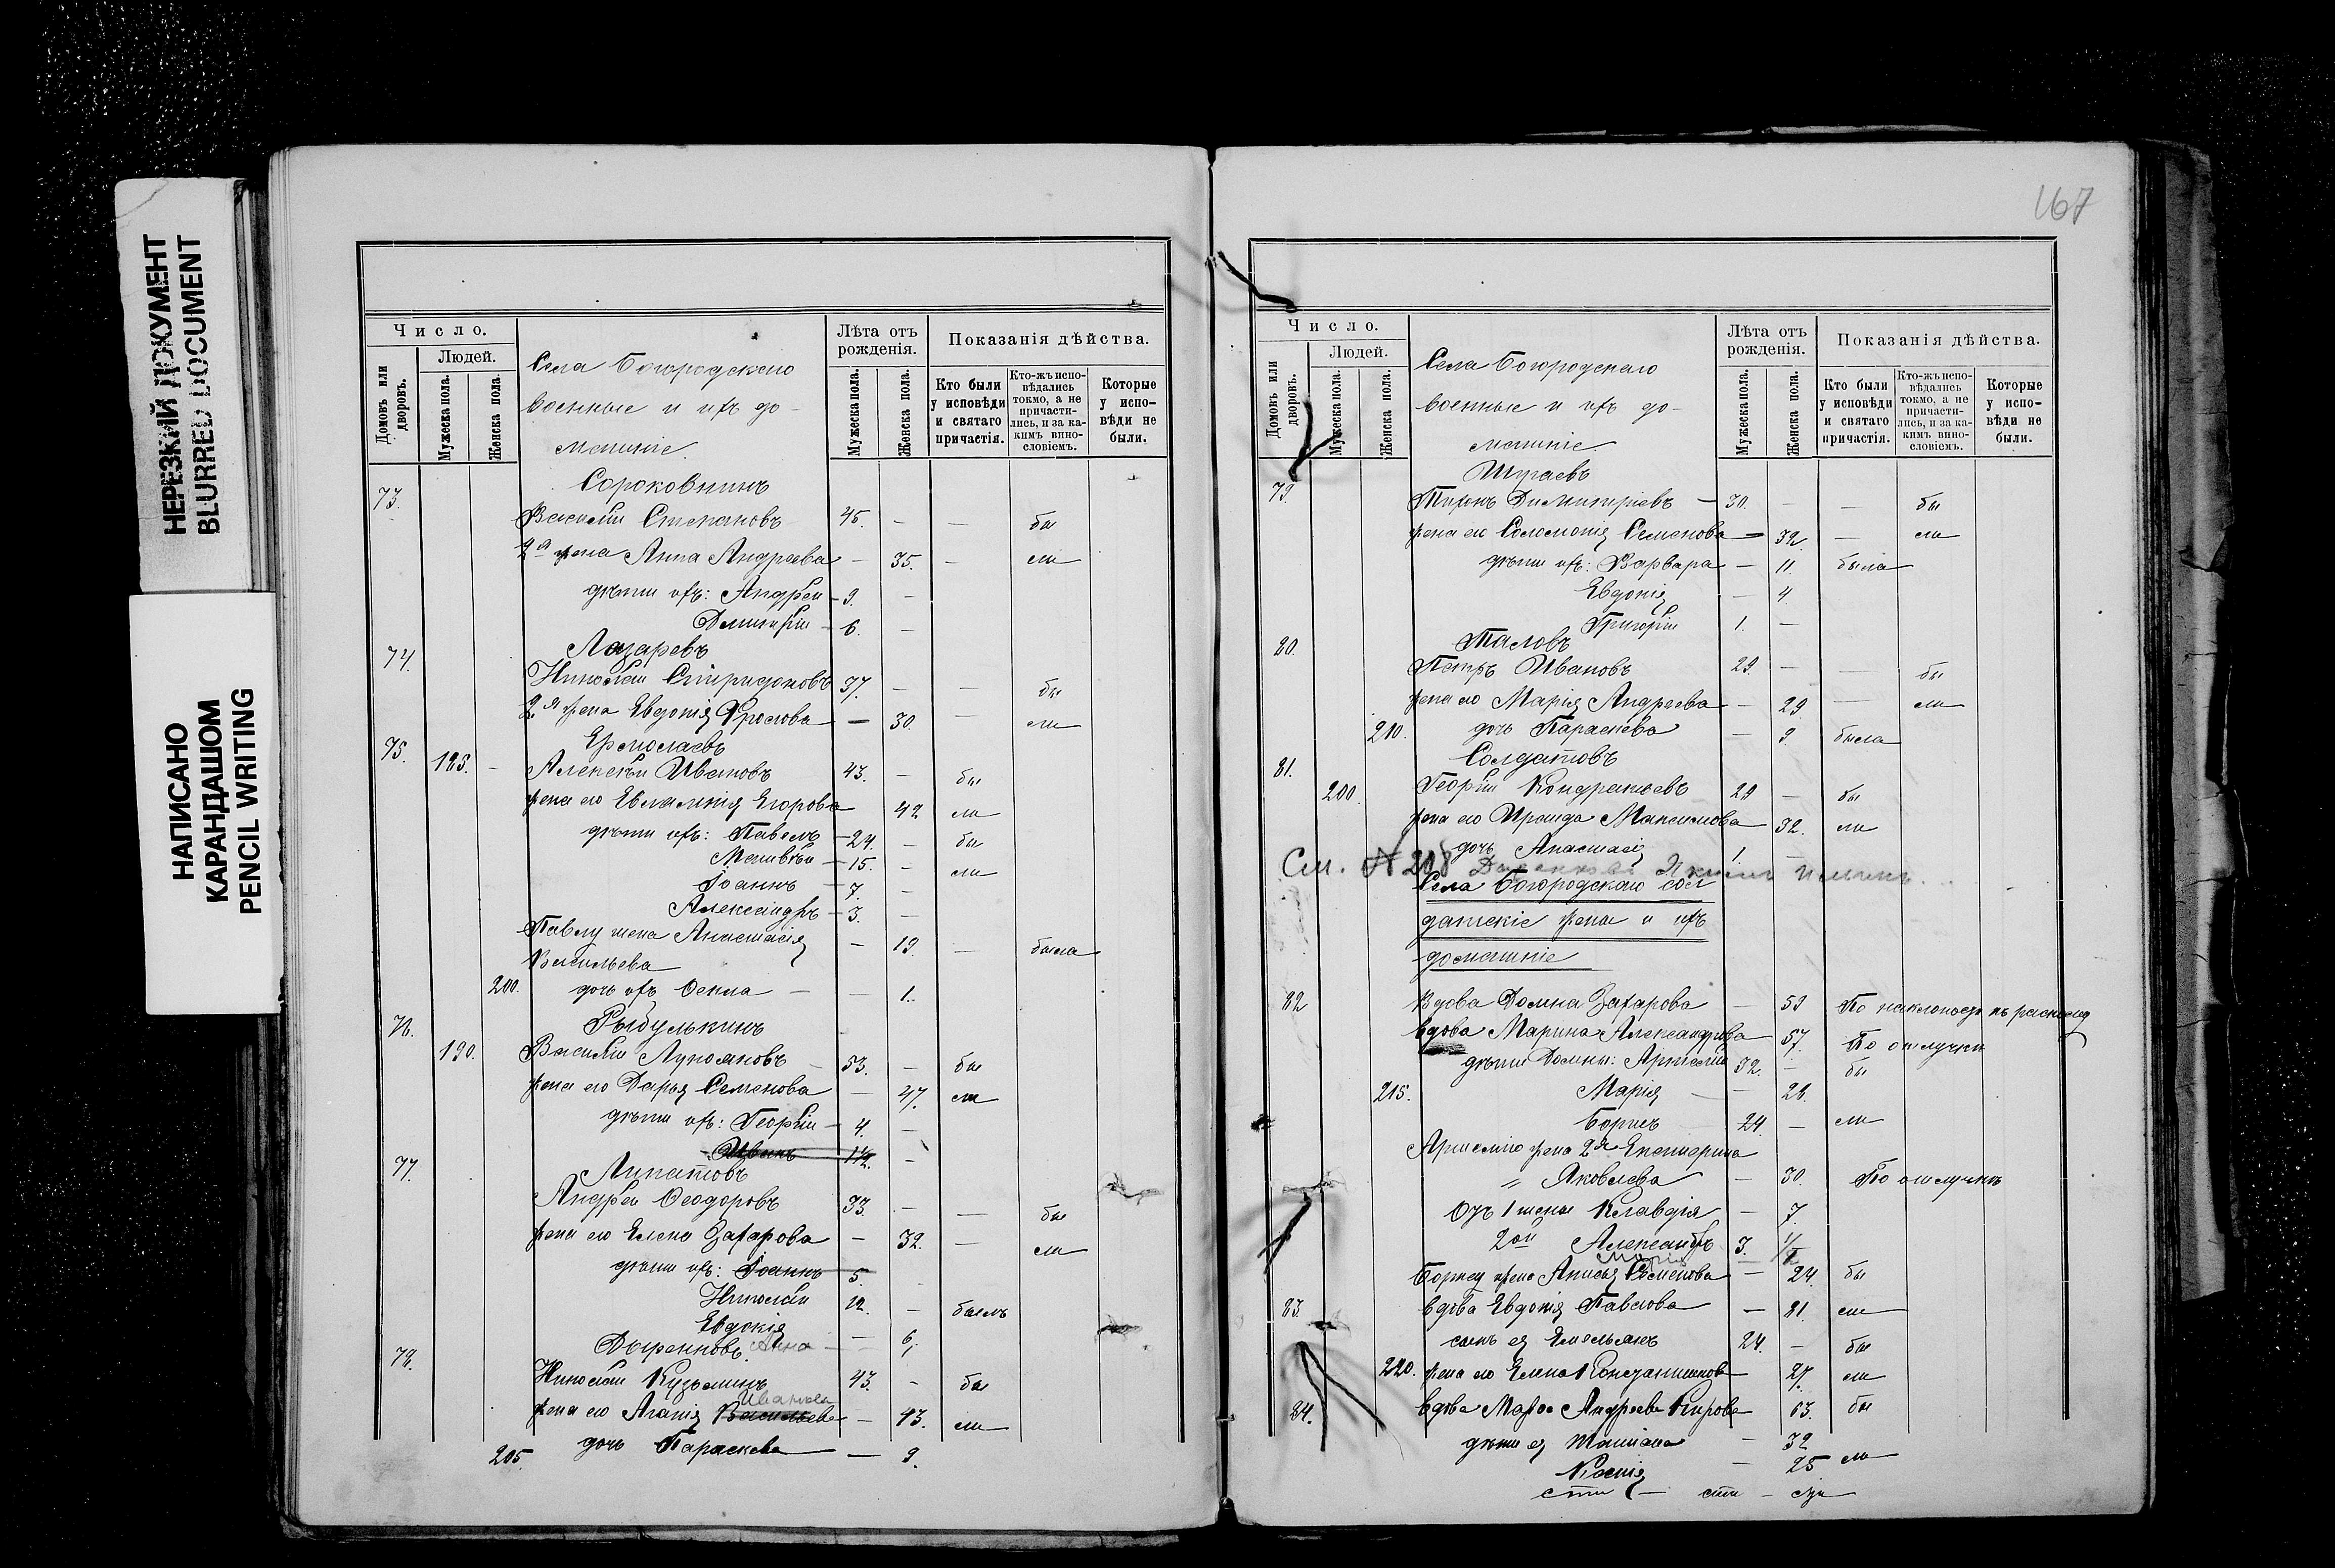 НЕРЕЗКИЙ ДОКУМЕНТ
BLURRED DOCUMENT
НАПИСАНО
КАРАНДАШОМ
PENCIL WRITING
Число.
Людей.
Домовъ или дворовъ.
Мужеска пола.
Женска пола.
Села Богородскаго
военные и ихъ до-
машніе.
Лѣта отъ рожденія.
Мужеска пола.
Женска пола.
Показанія дѣйства.
Кто были у исповѣди и святаго причастія.
Кто-жъ испо-вѣдались токмо, а не причасти-лись, и за ка-кимъ вино-словіемъ.
Которые у испо-вѣди не были.
73. Сороковнинъ
Василій Степановъ 45. — — бы
2я жена Анна Андреева — 35. — ли
дѣти ихъ: Андрей — 9. —
Дмитрій — 6. —
74. Лазаревъ
Николай Спиридоновъ 37. — — бы
2я жена Евдокія Фролова — 30. — ли
75. Ермолаевъ
185. — Алексѣй Ивановъ 43. — бы
жена его Евлампія Егорова 42 ли
дѣти ихъ: Павелъ — 24. — бы
Матвѣй — 15. — ли
Іоаннъ — 7. —
Александръ — 3. —
Павлу жена Анастасія — 19. — была
Васильева
200. дочь ихъ — — 1.
76.
190. Василій Лукояновъ 53. — бы
жена его Дарья Семенова — 47. ли
дѣти ихъ: Георгій — 4. —
Иванъ 1/2. —
77. Липатовъ
Андрей Ѳеодоровъ 33. — — бы
жена его Елена Захарова — 32. — ли
дѣти ихъ: Іоаннъ 5.
Николай 12. — былъ
Евдокія — 6.
78. Дыренковъ. Анна
Николай Кузьминъ 43. — бы
Иванова
жена его Агапія Васильева — 43. ли
205. дочь Параскева — 9.
167
Число.
Людей.
Домовъ или дворовъ.
Мужеска пола.
Женска пола.
Села Богородскаго
военные и ихъ до-
машніе.
Лѣта отъ рожденія.
Мужеска пола.
Женска пола.
Показанія дѣйства.
Кто были у исповѣди и святаго причастія.
Кто-жъ испо-вѣдались токмо, а не причасти-лись, и за ка-кимъ вино-словіемъ.
Которые у испо-вѣди не были.
79.
Тихонъ Димитріевъ — 30. — — бы
жена его Соломонія Семенова — 32. — ли
дѣти ихъ: Варвара — 11. была
Евдокія — 4.
Григорій 1. —
80. Таловъ
Петръ Ивановъ 29. — — бы
жена его Марія Андреева — 29 — ли
210. дочь Параскева — 9. была
81. Солдатовъ
200. Георгій Кондратьевъ 29 — бы
жена его Ираида Максимова 32. ли
дочь Анастасія 1. —
См. №
Села Богородскаго сол
датскіе жены и ихъ
домашніе
82 Вдова Домна Захарова — 59 По
вдова Марина Александрова 57. По отлучкѣ
дѣти Домны: Артемій 32. — бы
215. Марія — 28.
Борисъ 24. — ли
Артемію жена 2я Екатерина
„ Яковлева — 30. По отлучкѣ
Отъ 1 жены Клавдія — 7.
2ой Александръ 3.
Марія
Борису жена Анисья Семенова — 24. бы
83. вдова Евдокія Павлова — 81. ли
сынъ ея Емельянъ 24. — бы
220. жена его Елена Константинова 27. ли
84. вдова Марѳа Андреева Кирова 63. бы
дѣти ея Татіана — 32
Ксенія — 25 ли